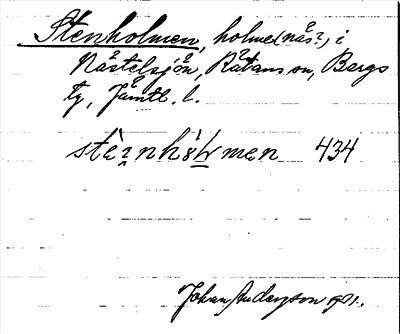 Stenholmen, holme (näs?) i
Nästelsjön, Rätans sn, Bergs
tg, Jämtl. l.
stè̀nhò̀lmen 434
Johan Anderson 1901.